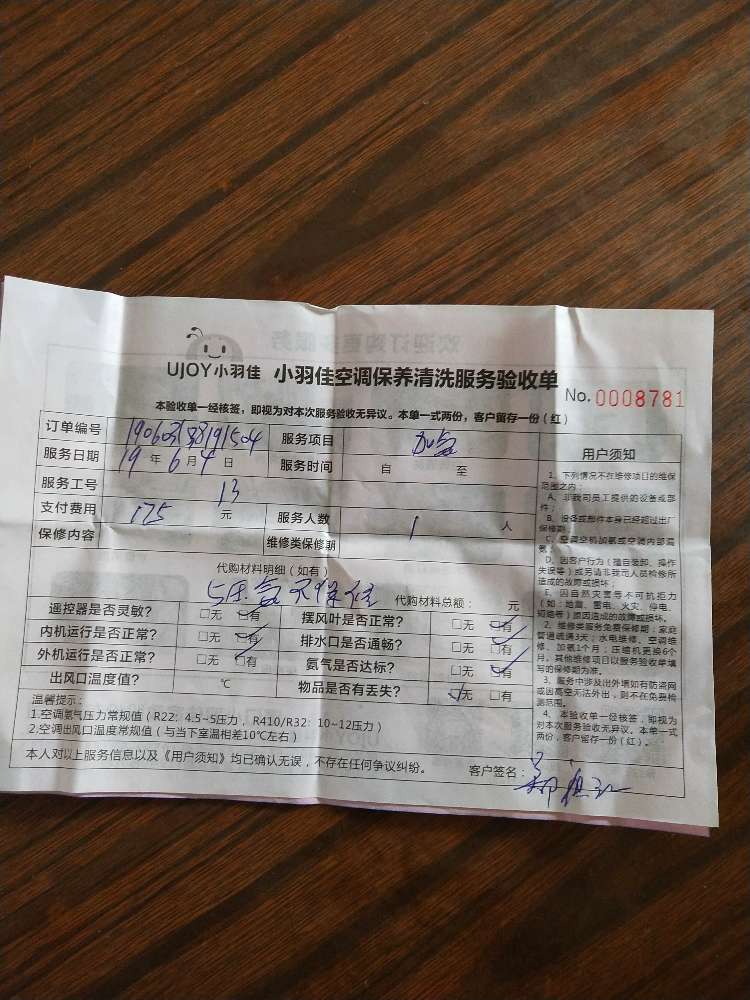 UJOY小羽佳 小羽佳空调保养清洗服务验收单 No. 0008781
本验收单一经核签，即视为对本次服务验收无异议。本单一式两份，客户留存一份（红）
订单编号 服务项目 加氨
服务日期 19年6月4日 服务时间 自 至
服务工号 13
支付费用 175 元 服务人数 1 人
保修内容 维修类保修期
代购材料明细（如有）
代购材料总额： 元
遥控器是否灵敏? □无 □有 摆风叶是否正常? □无 □有
内机运行是否正常? □无 □有 排水口是否通畅? □无 □有
外机运行是否正常? □无 □有 氨气是否达标? □无 □有
出风口温度值? ℃ 物品是否有丢失? □无 □有
温馨提示：
1.空调氨气压力常规值（R22：4.5~5压力，R410/R32：10~12压力）
2.空调出风口温度常规值（与当下室温相差10℃左右）
本人对以上服务信息以及《用户须知》均已确认无误，不存在任何争议纠纷。 客户签名：
用户须知
1、下列情况不在维修项目的维保
范围之内：
A、非我司员工提供的设备或部
件；
B、设备或部件本身已经超过出厂
保修期；
C、空调空机加氨或空调内部漏
氨；
D、因客户行为（擅自装卸、操作
失误等）或另请非我司人员检修所
造成的故障或损坏；
E、因自然灾害等不可抗拒力
（如：地震、雷电、火灾、停电、
短路等）原因造成的故障或损坏。
2、维修类服务免费保修期：家庭
管道疏通3天；水电维修、空调维
修、加氨1个月；压缩机更换6个
月。其他维修项目以服务验收单填
写的保修期为准。
3、服务中涉及出外墙如有防盗网
或因高空无法外出，则不在免费检
测范围。
4、本验收单一经核签，即视为
对本次服务验收无异议。本单一式
两份，客户留存一份（红）。